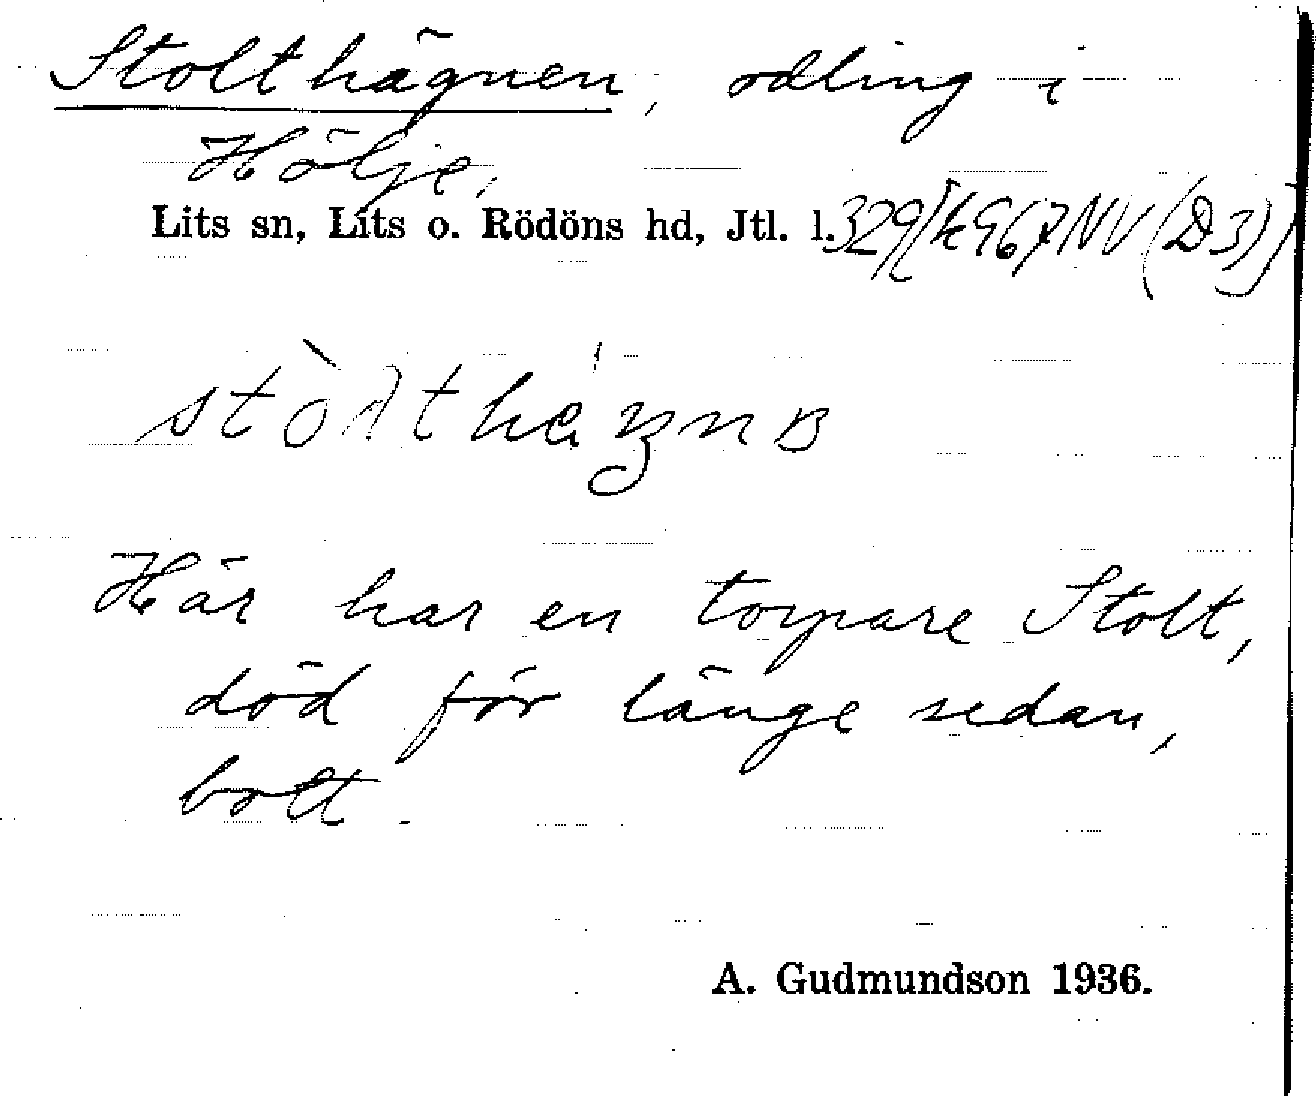 Stolthägnen, odling i
Hölje,
Lits sn, Lits o. Rödöns hd, Jtl. l. 329[k967NV(D3)]
Här har en torpare Stolt,
död för länge sedan,
bott.
A. Gudmundson 1936.